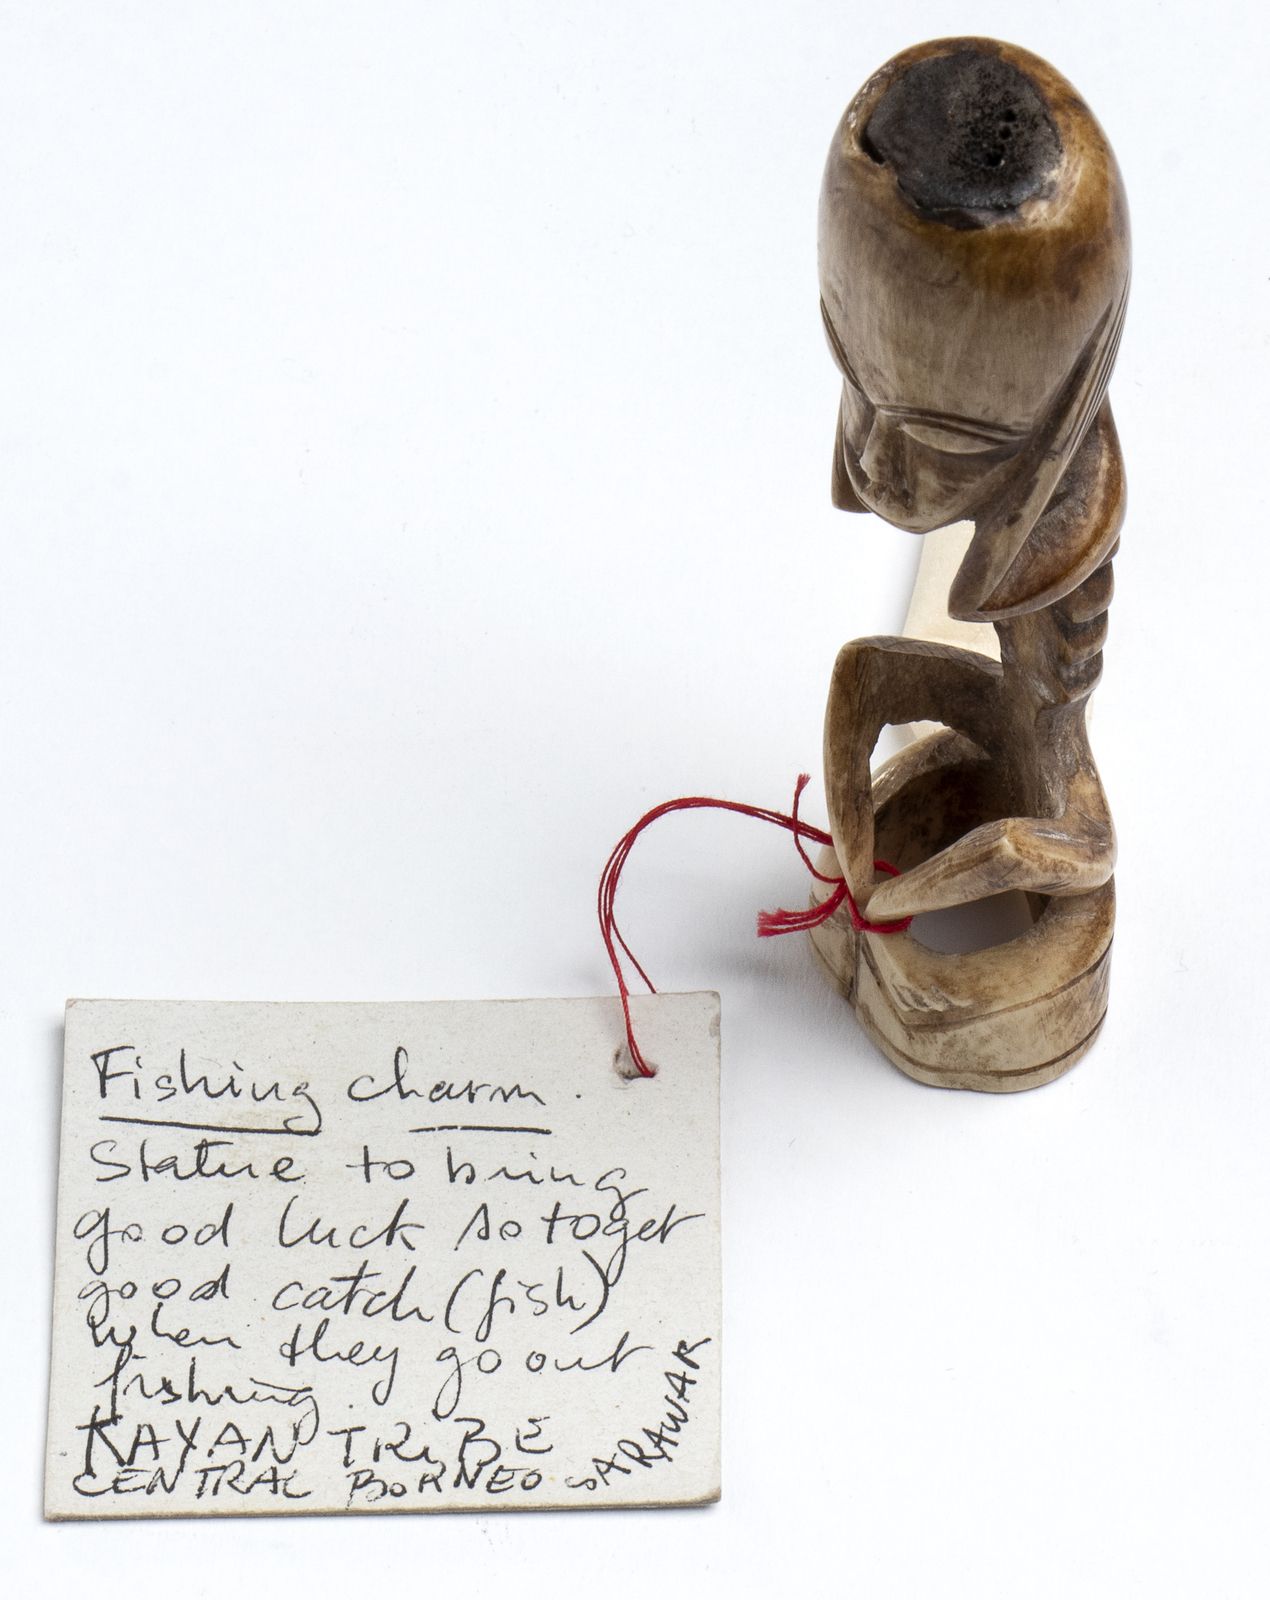 Fishing charm.
Statue to bring
good luck so to get
good catch (fish)
when they go out
fishing.
KAYAN TRIBE
CENTRAL BORNEO SARAWAK